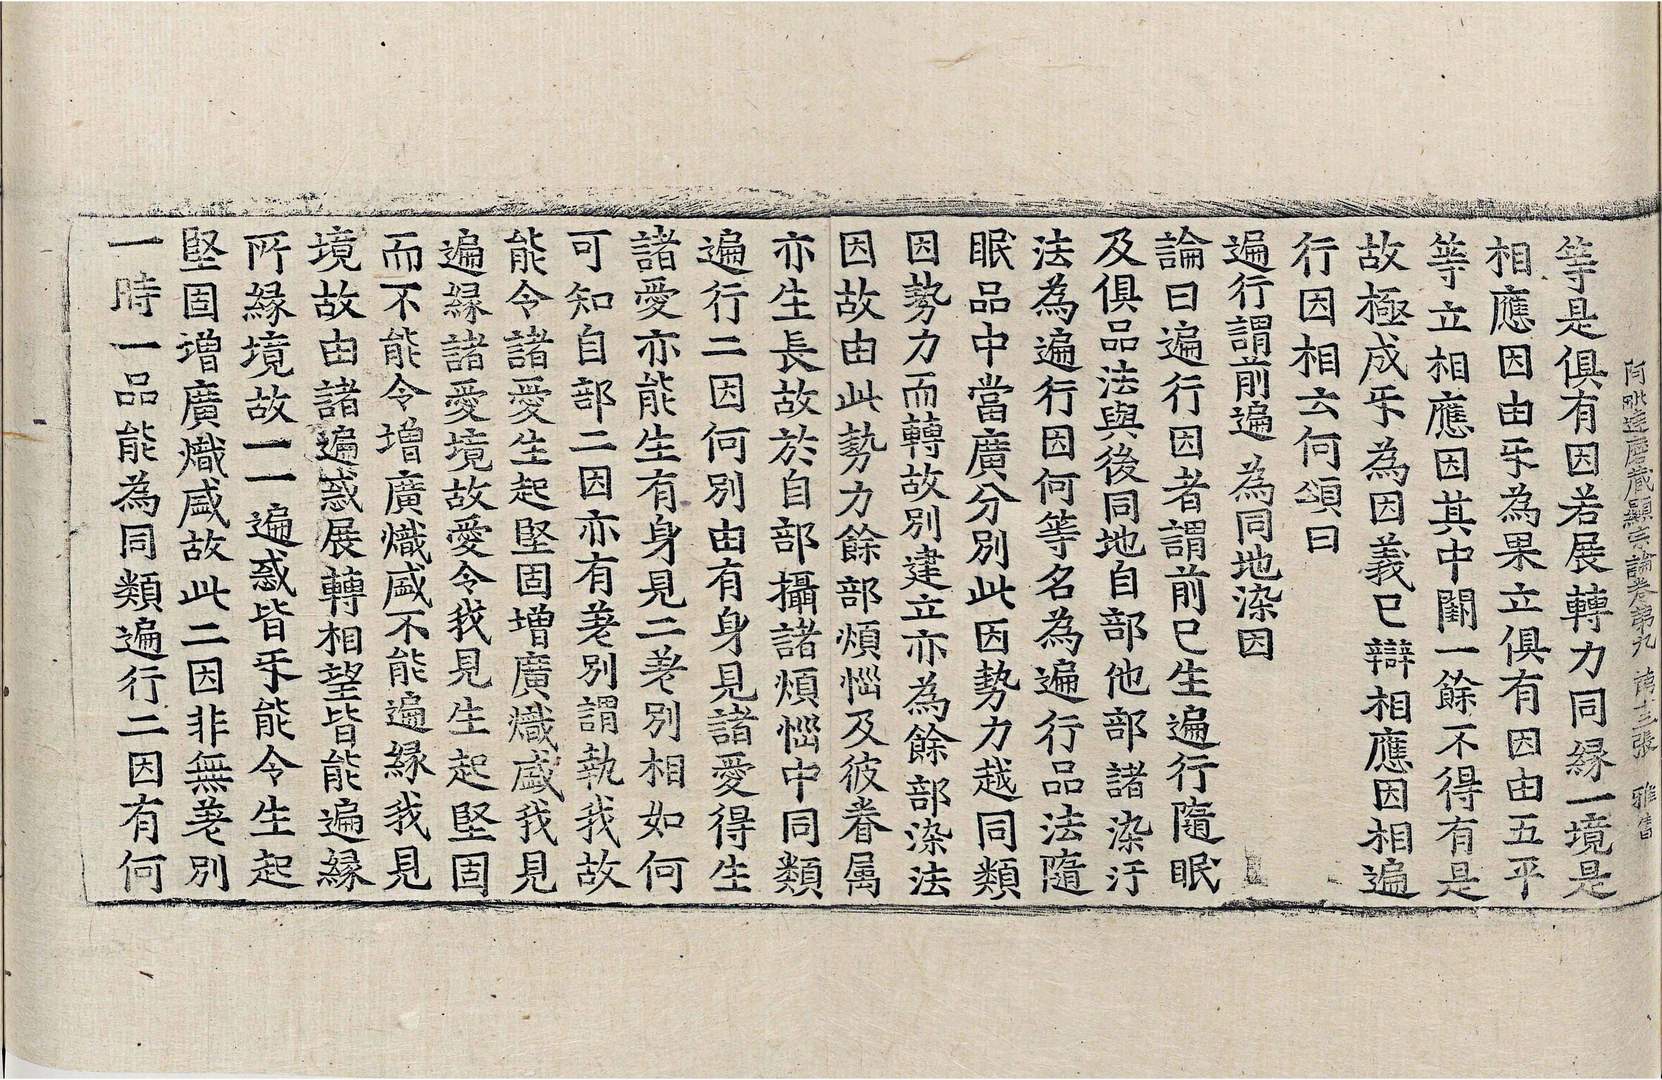 阿毗達磨藏顯宗論卷第九 第十三張 雅
等是俱有因若展轉力同緣一境是
相應因由㸦為果立俱有因由五平
等立相應因其中闕一餘不得有是
故極成㸦為因義已辯相應因相遍
行因相云何頌曰
遍行謂前遍 為同地染因
論曰遍行因者謂前已生遍行隨眠
及俱品法與後同地自部他部諸染汙
法為遍行因何等名為遍行品法隨
眠品中當廣分別此因勢力越同類
因勢力而轉故別建立亦為餘部染法
因故由此勢力餘部煩惱及彼眷属
亦生長故於自部攝諸煩惱中同類
遍行二因何別由有身見諸愛得生
諸愛亦能生有身見二差別相如何
可知自部二因亦有差別謂執我故
能令諸愛生起堅固增廣熾盛我見
遍緣諸愛境故愛令我見生起堅固
而不能令增廣熾盛不能遍緣我見
境故由諸遍惑展轉相望皆能遍緣
所緣境故一一遍惑皆㸦能令生起
堅固增廣熾盛故此二因非無差別
一時一品能為同類遍行二因有何